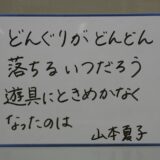 どんぐりが どんどん
落ちる いつだろう
遊具にときめかなく
なったのは
山本夏子